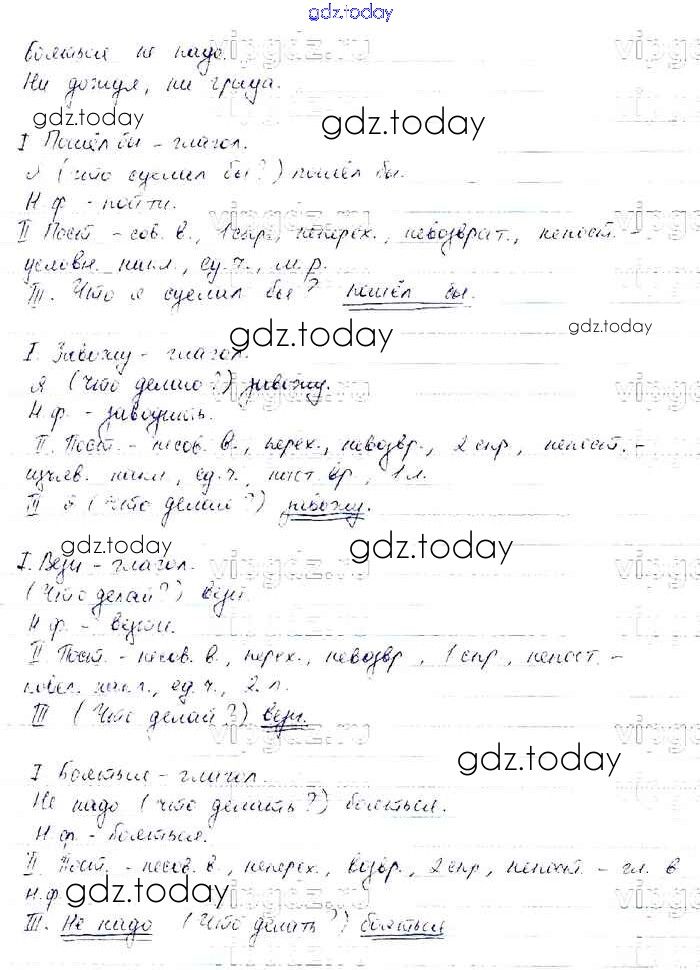 gdz.today
Бояться не надо.
Ни дождя, ни града.
gdz.today
gdz.today
I Пошёл бы – глагол.
Я (что сделал бы?) пошёл бы.
Н.ф. – пойти.
II Пост – сов. в., 1 спр., неперех., невозврат., непост. –
условн. накл., ед. ч., м. р.
III. Что я сделал бы? пошёл бы.
gdz.today
gdz.today
I. Завожу – глагол.
Я (Что делаю?) завожу.
Н.ф. – заводить.
II. Пост. – несов. в., перех., невозвр., 2 спр., непост. –
изъяв. накл., ед. ч., наст. вр., 1 л.
III Я (Что делаю?) завожу.
gdz.today
gdz.today
I. Вези – глагол.
(Что делай?) вези.
Н.ф. – везти.
II Пост. – несов. в., перех., невозвр, 1 спр, непост. –
повел. накл., ед. ч., 2 л.
III (Что делай?) вези.
gdz.today
I Бояться – глагол.
Не надо (что делать?) бояться.
Н.ф. – бояться.
II Пост. – несов. в, неперех., возвр., 2 спр, непост – гл. в
Н.ф.
gdz.today
gdz.today
III. Не надо (Что делать?) бояться
vipgdz.ru